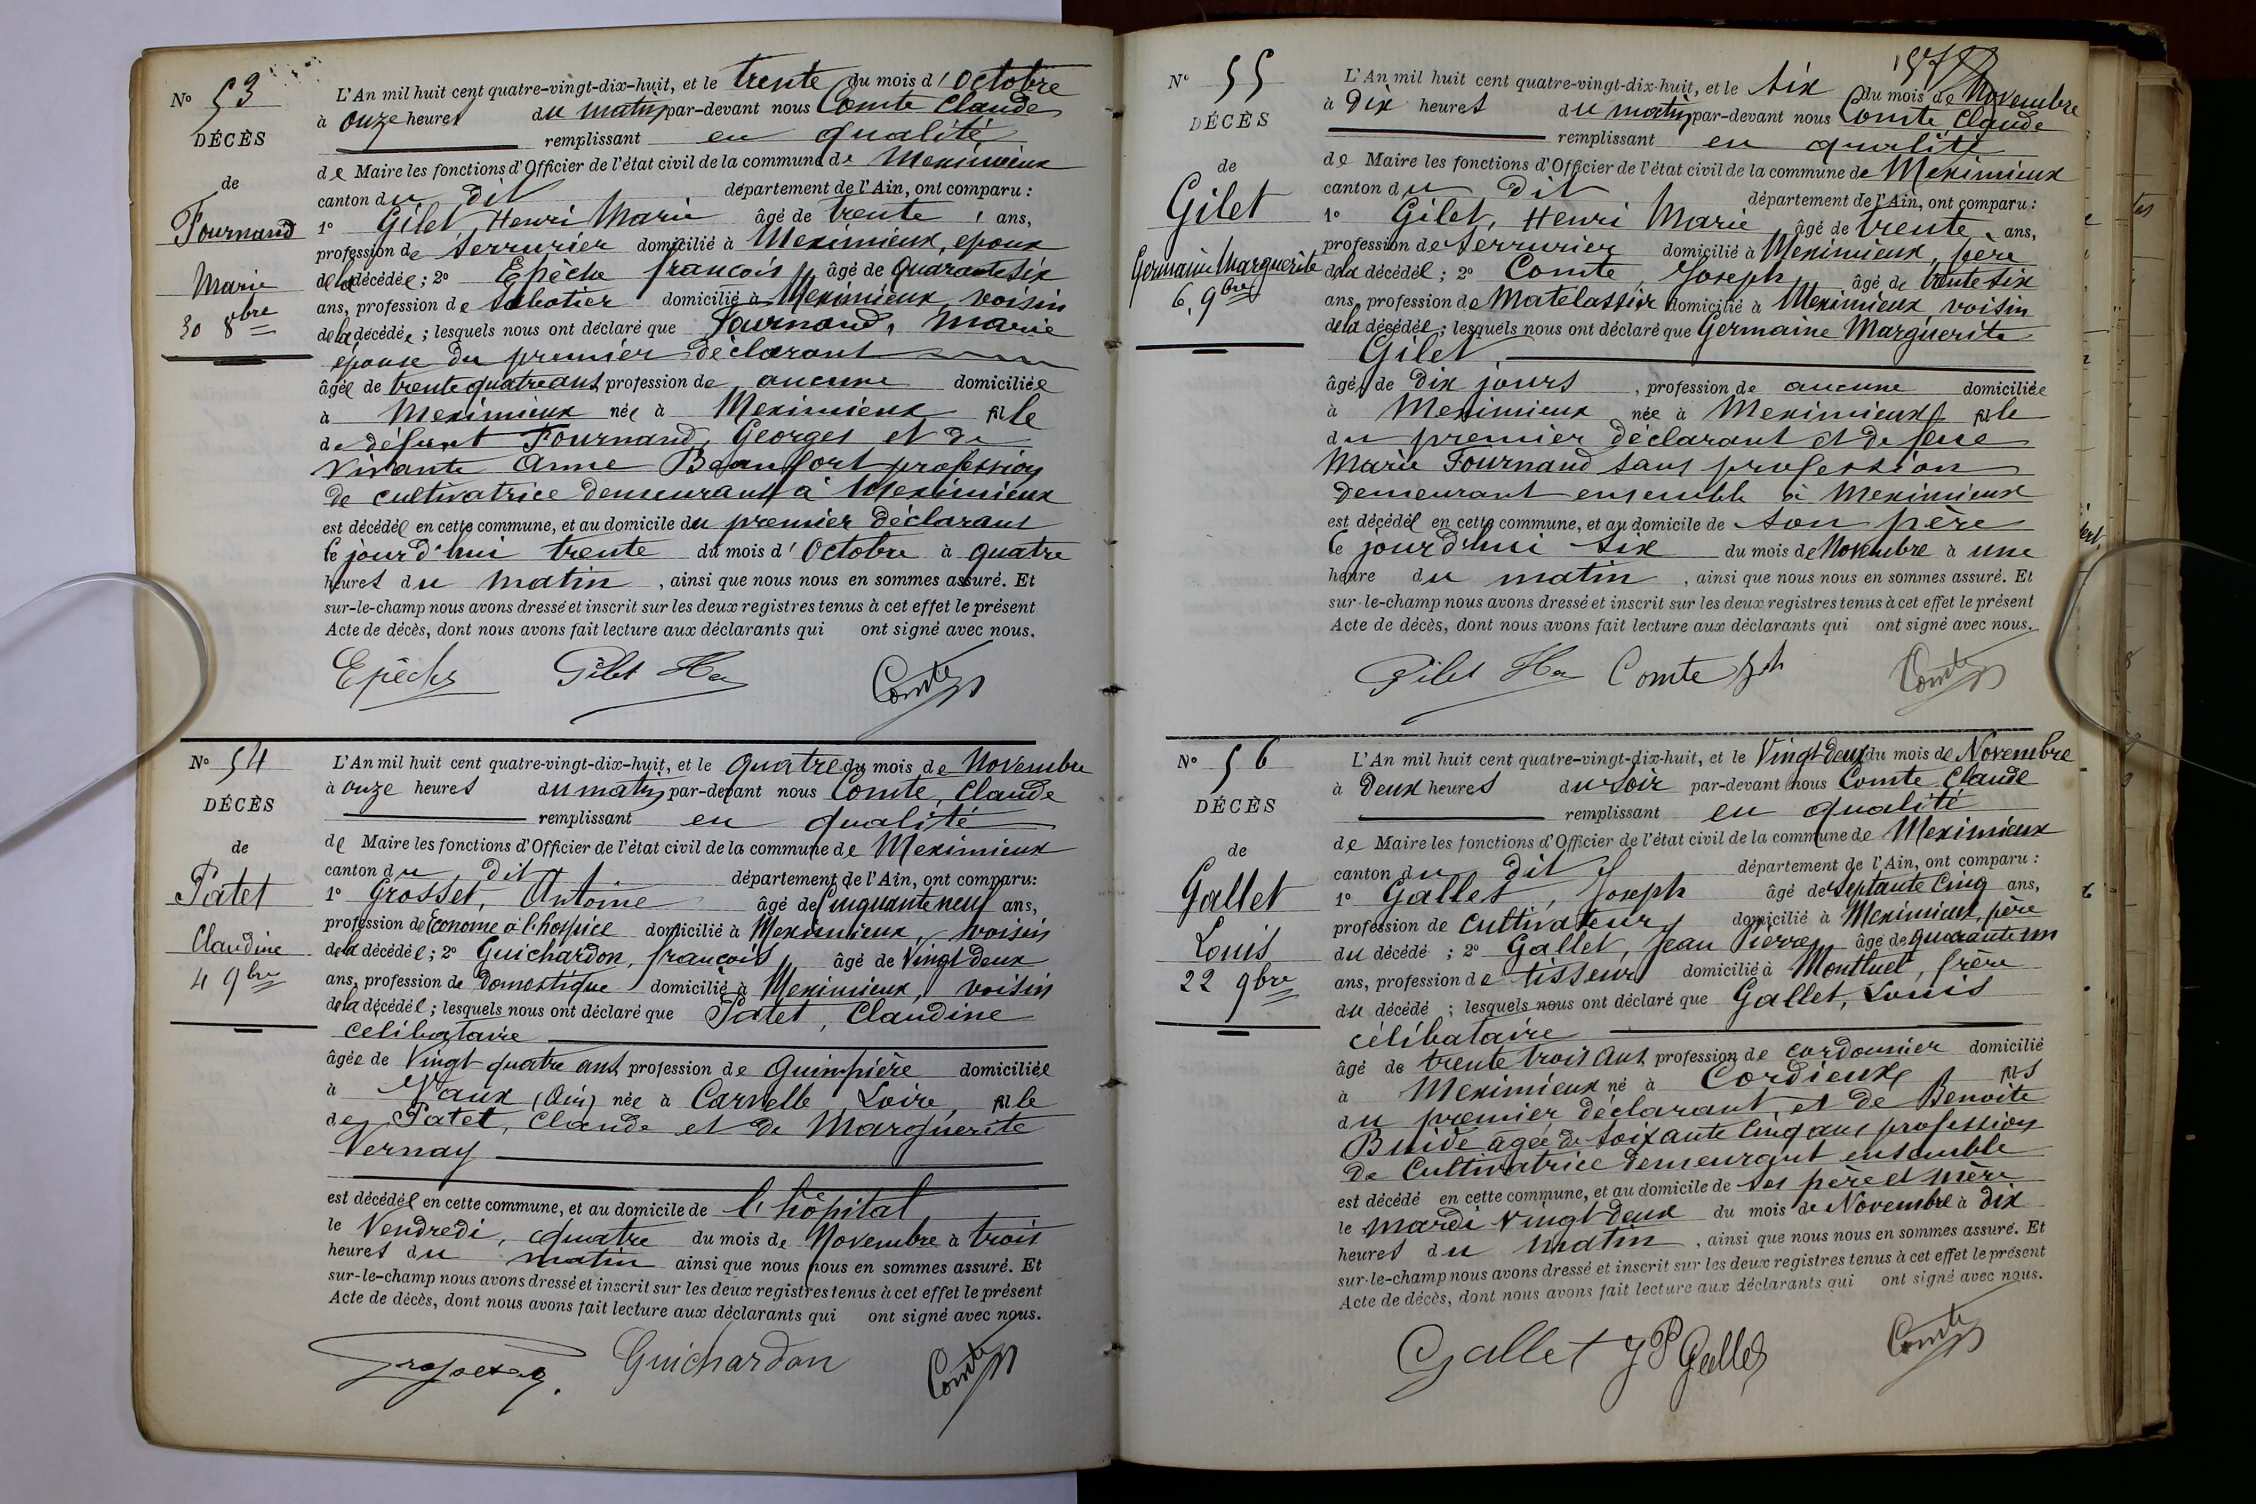 N° 53
DÉCÈS
de
Fournand
Marie
30 8bre
L'An mil huit cent quatre-vingt-dix-huit, et le trente du mois d'Octobre
à onze heures du matin par-devant nous Comte Claude
remplissant en qualité
de Maire les fonctions d'Officier de l'état civil de la commune de Meximieux
canton du dit département de l'Ain, ont comparu :
1° Gilet Henri Marie âgé de trente ans,
profession de serrurier domicilié à Meximieux, époux
de la décédée ; 2° Epêche françois âgé de quarante six
ans, profession de sabotier domicilié à Meximieux, voisin
de la décédée ; lesquels nous ont déclaré que Fournand, Marie
épouse du premier déclarant
âgée de trente quatre ans, profession de aucune domiciliée
à Meximieux née à Meximieux fille
de défunt Fournand, Georges et de
vivante Anne Beaufort profession
de cultivatrice demeurant à Meximieux
est décédée en cette commune, et au domicile du premier déclarant
le jourd'hui trente du mois d'Octobre à quatre
heures du matin, ainsi que nous nous en sommes assuré. Et
sur-le-champ nous avons dressé et inscrit sur les deux registres tenus à cet effet le présent
Acte de décès, dont nous avons fait lecture aux déclarants qui ont signé avec nous.
Epêche Gilet Hri Comte
N° 54
DÉCÈS
de
Patet
Claudine
4 9bre
L'An mil huit cent quatre-vingt-dix-huit, et le quatre du mois de Novembre
à onze heures du matin par-devant nous Comte, Claude
remplissant en qualité
de Maire les fonctions d'Officier de l'état civil de la commune de Meximieux
canton du dit département de l'Ain, ont comparu:
1° Grosset, Antoine âgé de Cinquante neuf ans,
profession de Econome à l'hospice domicilié à Meximieux, voisin
de la décédée ; 2° Guichardon, françois âgé de Vingt deux
ans, profession de Domestique domicilié à Meximieux, voisin
de la décédée ; lesquels nous ont déclaré que Patet, Claudine
célibataire
âgée de Vingt quatre ans, profession de Guimpière domiciliée
à Vaux (Ain) née à Carvelle Loire, fille
de Patet, Claude et de Marguerite
Vernay
est décédée en cette commune, et au domicile de l'hôpital
le Vendredi, quatre du mois de Novembre à trois
heures du matin ainsi que nous nous en sommes assuré. Et
sur-le-champ nous avons dressé et inscrit sur les deux registres tenus à cet effet le présent
Acte de décès, dont nous avons fait lecture aux déclarants qui ont signé avec nous.
Guichardon Comte
N° 55
DÉCÈS
de
Gilet
Germaine Marguerite
6. 9bre
L'An mil huit cent quatre-vingt-dix-huit, et le six du mois de Novembre
à Dix heures du matin par-devant nous Comte, Claude
remplissant en qualité
de Maire les fonctions d'Officier de l'état civil de la commune de Meximieux
canton du dit département de l'Ain, ont comparu :
1° Gilet, Henri Marie âgé de trente ans,
profession de serrurier domicilié à Meximieux, père
de la décédée ; 2° Comte Joseph âgé de trente six
ans, profession de Matelassier domicilié à Meximieux, voisin
de la décédée ; lesquels nous ont déclaré que Germaine Marguerite
Gilet
âgée de Dix jours, profession de aucune domiciliée
à Meximieux née à Meximieux fille
du premier déclarant et de feue
Marie Fournand sans profession
demeurant ensemble à Meximieux
est décédée en cette commune, et au domicile de son père
le jourd'hui six du mois de Novembre à une
heure du matin, ainsi que nous nous en sommes assuré. Et
sur-le-champ nous avons dressé et inscrit sur les deux registres tenus à cet effet le présent
Acte de décès, dont nous avons fait lecture aux déclarants qui ont signé avec nous.
Gilet Hri Comte Jph Comte
N° 56
DÉCÈS
de
Gallet
Louis
22 9bre
L'An mil huit cent quatre-vingt-dix-huit, et le Vingt deux du mois de Novembre
à Deux heures du soir par-devant nous Comte Claude
remplissant en qualité
de Maire les fonctions d'Officier de l'état civil de la commune de Meximieux
canton du dit département de l'Ain, ont comparu :
1° Gallet, Joseph âgé de septante Cinq ans,
profession de cultivateur domicilié à Meximieux, père
du décédé ; 2° Gallet, Jean Pierre âgé de quarante un
ans, profession de tisseur domicilié à Montluel, frère
du décédé ; lesquels nous ont déclaré que Gallet, Louis
célibataire
âgé de trente trois ans, profession de cordonnier domicilié
à Meximieux né à Cordieux fils
du premier déclarant, et de Benoite
Buidé agée de soixante Cinq ans profession
de Cultivatrice demeurant ensemble
est décédé en cette commune, et au domicile de ses père et mère
le mardi vingt deux du mois de Novembre à dix
heures du matin, ainsi que nous nous en sommes assuré. Et
sur-le-champ nous avons dressé et inscrit sur les deux registres tenus à cet effet le présent
Acte de décès, dont nous avons fait lecture aux déclarants qui ont signé avec nous.
Gallet J P Gallet Comte